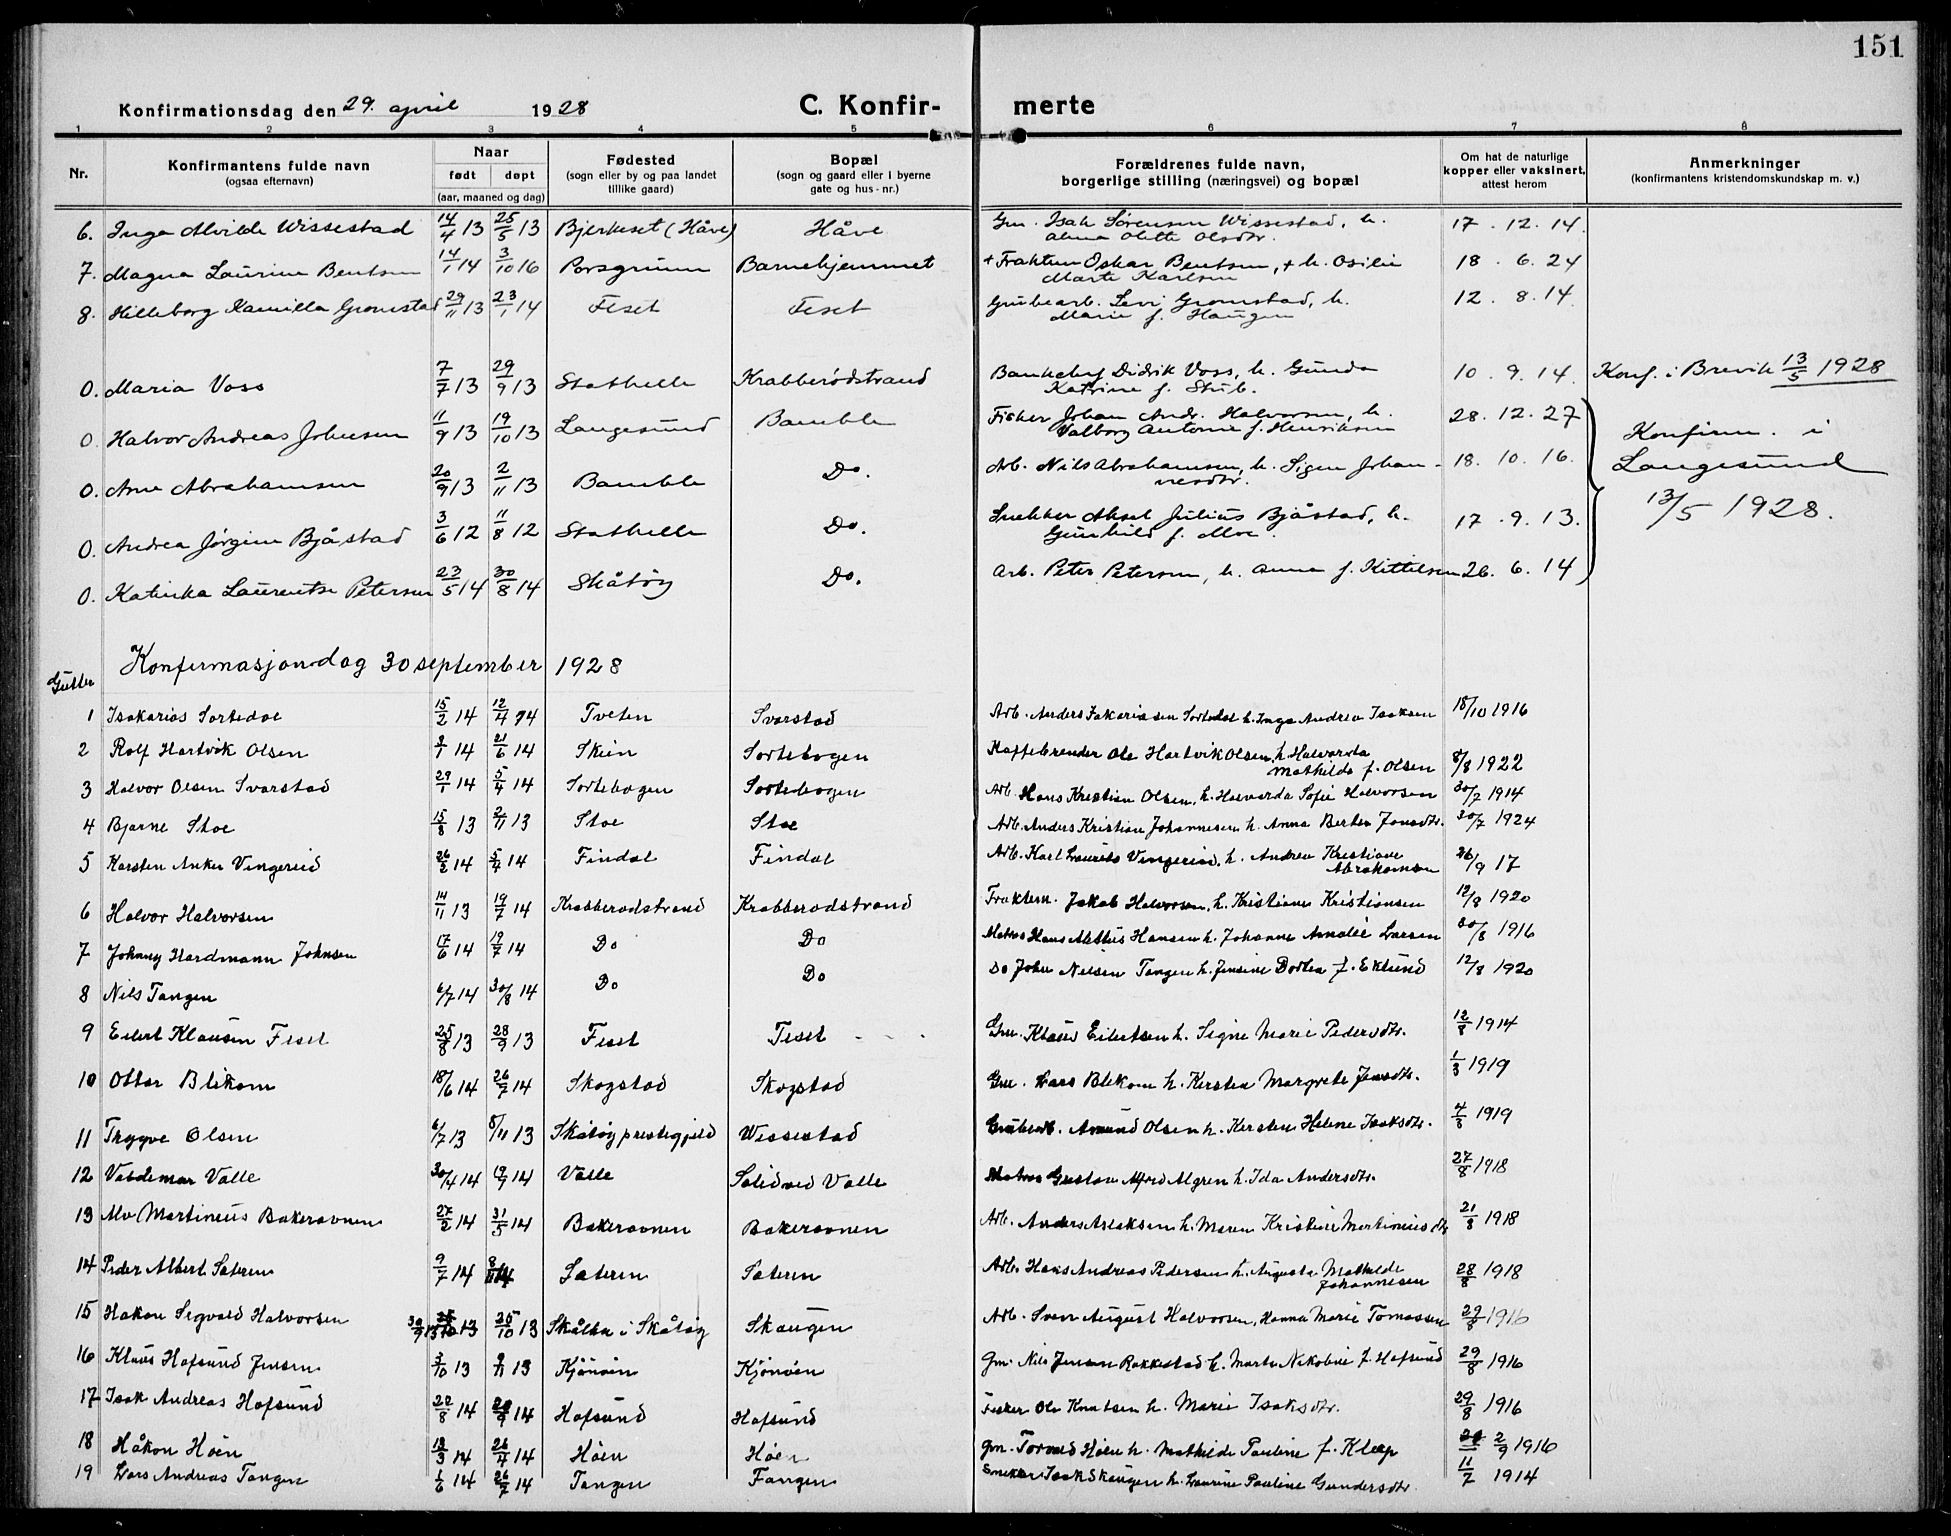 151
Konfirmationsdag den 29. april 1928 C. Konfir- merte
1 2 3 4 5 6 7 8
Nr. Konfirmantens fulde navn (ogsaa efternavn) Naar født døpt (aar, maaned og dag) Fødested (sogn eller by og paa landet tillike gaard) Bopæl (sogn og gaard eller i byerne gate og hus-nr.) Forældrenes fulde navn, borgerlige stilling (næringsvei) og bopæl Om hat de naturlige kopper eller vaksinert, attest herom Anmerkninger (konfirmantens kristendomskundskap m. v.)
6. Inga Alvilde Wissestad 14/4 13 25/5 13 Bjerkeset (Håve) Håve Gm. Isak Sørensen Wissestad, h. 17. 12. 14.
Alma Olette Olsdtr.
7. Magna Laurine Bentsen 14/1 14 3/10 16 Porsgrunn Barnehjemmet + Fraktem Oskar Bentsen, + h. Osilie 18. 6. 24
Marte Karlsen
8. Hilleborg Kamilla Gromstad 29/11 13 23/1 14 Feset Feset Grubearb. Levi Gromstad, h. 12. 8. 14.
Marie f. Haugen
0. Maria Voss 7/7 13 29/9 13 Stathelle Krabberødstrand Bankchef Didrik Voss, h. Gunda 10. 9. 14. Konf. i Brevik 13/5 1928
Katrine f. Stub.
0. Halvor Andreas Johnsen 11/9 13 19/10 13 Langesund Bamble Fisker Johan Andr. Halvorsen, h. 28. 12. 27 Konfirm. i
Valborg Antonie f. Henriksen
0. Arne Abrahamsen 20/9 13 2/11 13 Bamble Do. Arb. Nils Abrahamsen, h. Signe Johan- 18. 10. 16. Langesund
nesdtr.
0. Andrea Jørgine Bjåstad 3/6 12 11/8 12 Stathelle Do. Snekker Aksel Julius Bjåstad, h. 17. 9. 13. 13/5 1928.
Gunhild f. Moe.
0. Katinka Laurentse Petersen 23/5 14 30/8 14 Skåtøy Do. Arb. Peter Petersen, h. Anna f. Kittilsen 26. 6. 14
Konfirmasjonsdag 30 september 1928
Gutter
1 Isakarias Sortedal 15/2 14 12/4 14 Tveten Svarstad Arb. Anders Zakariasen Sortedal h. Inga Andrea Isaksen 18/10 1916
2 Rolf Hartvik Olsen 14 21/6 14 Skien Sortebogen Kaffebrender Ole Hartvik Olsen, h. Halvarda 8/8 1922
Mathilde f. Olsen
3 Halvor Olsen Svarstad 29/1 14 5/4 14 Sortebogen Sortebogen Arb. Hans Kristian Olsen, h. Halvarda Sofie Halvorsen 30/7 1914
4 Bjarne Stoe 15/8 13 2/11 13 Stoe Stoe Arb. Anders Kristian Johannesen h. Anna Bertea Jonsdtr. 30/7 1924
5 Karsten Anker Vingereid 26/2 14 5/4 14 Findal Findal Arb. Karl Laurits Vingereid, h. Andrea Kristiane 26/9 17
Abrahamsen
6 Halvor Halvorsen 14/11 13 19/7 14 Krabberødstrand Krabberødstrand Fraktem. Jakob Halvorsen, h. Kristiane Kristiansen 12/8 1920
7 Johnny Hardmann Johnsen 17/6 14 19/7 14 Do Do Matros Hans Mettus Hansen h. Johanne Amalie Larsen 30/8 1916
8 Nils Tangen 6/7 14 30/8 14 Do Do Do John Nilsen Tangen h. Jensine Dortea f. Eklund 12/8 1920
9 Eilert Klausen Feset 25/8 13 28/9 13 Feset Feset Gm. Klaus Eilertsen h. Signe Marie Pedersdtr. 12/8 1914
10 Ottar Blekom 18/6 14 26/7 14 Skogstad Skogstad Gm. Lars Blekom h. Kersten Margrete Jensdtr. 1/3 1919
11 Trygve Olsen 6/7 13 8/11 13 Skåtøy prestegjeld Wissestad Grubearb. Amund Olsen h. Kersten Helene Isaksdtr. 4/3 1919
12 Valdemar Valle 30/4 14 19/ 14 Valle Solidved Valle Matros Gustav Alfred Algren h. Ida Andersdtr. 27/8 1918
13 Alv Martinius Bakeravnen 27/2 14 31/5 14 Bakeravnen Bakeravnen Arb. Anders Aslaksen h. Maren Kristine Martiniusdtr 21/8 1918
14 Peder Albert Sæteren 9/7 14 14 Sæteren Sæteren Arb. Hans Andreas Pedersen h. Augusta Mathilde 28/8 1918
Johannesen
15 Hakon Sigvald Halvorsen 30/9 13 13 26/10 13 Skålka i Skåtøy Skaugen Arb. Sven August Halvorsen, Hanna Marie Tomassen 29/8 1916
16 Klaus Hafsund Jensen 3/10 13 9/11 13 Kjønøen Kjønøen Gm. Nils Jensen Rakkestad h. Marta Nikoline f. Hafsund 29/8 1916
17 Isak Andreas Hafsund 22/8 14 20/9 14 Hafsund Hafsund Fisker Ole Knutsen h. Marie Isaksdtr. 29/8 1916
18 Håkon Høen 13/3 14 26/4 14 Høen Høen Gm. Torvald Høen h. Mathilde Pauline f. Klep 2/9 1916
19 Lars Andreas Tangen 1/6 14 26/7 14 Tangen Tangen Snekker Isak Skaugen h. Laurine Pauline Gundersdtr 11/7 1914